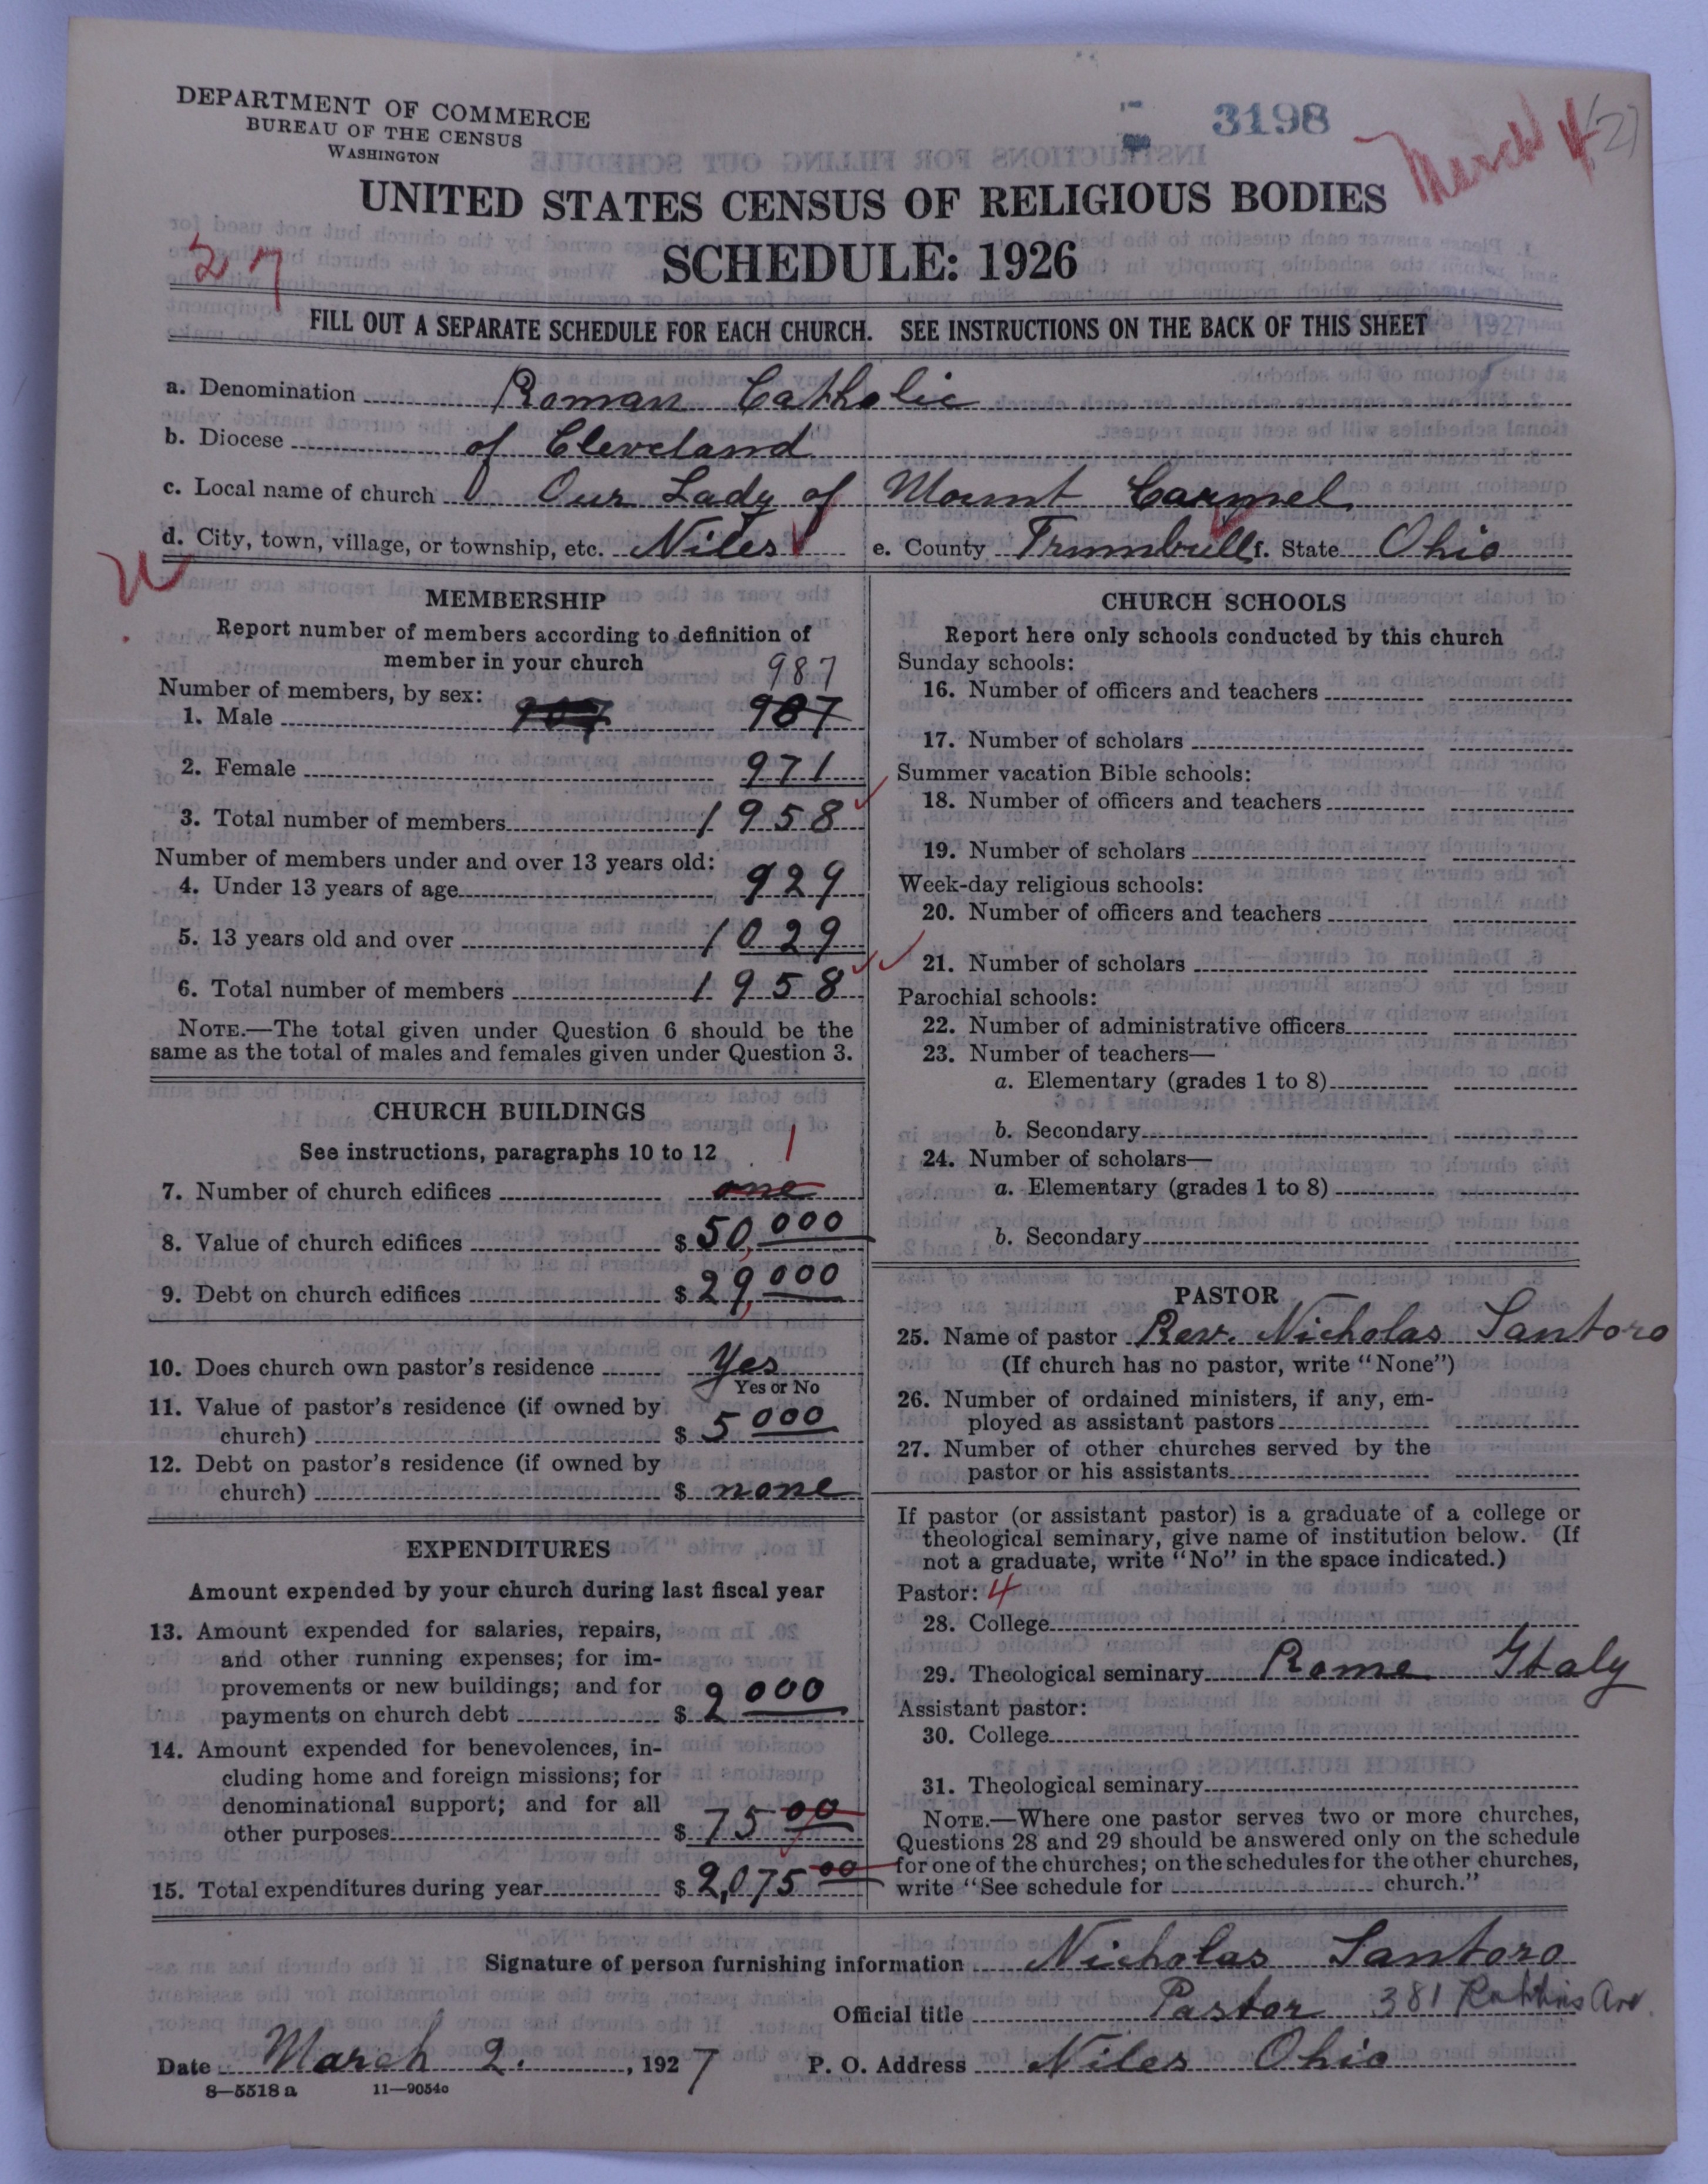 DEPARTMENT OF COMMERCE
BUREAU OF THE CENSUS
WASHINGTON
3198
March 4
27
UNITED STATES CENSUS OF RELIGIOUS BODIES
SCHEDULE: 1926
FILL OUT A SEPARATE SCHEDULE FOR EACH CHURCH. SEE INSTRUCTIONS ON THE BACK OF THIS SHEET
1927
a. Denomination Roman Catholic
b. Diocese of Cleveland
c. Local name of church Our Lady of Mount Carmel
d. City, town, village, or township, etc. Niles e. County Trumbull f. State Ohio
MEMBERSHIP
Report number of members according to definition of
member in your church
987
Number of members, by sex:
1. Male 987
2. Female 971
3. Total number of members 1958
Number of members under and over 13 years old:
4. Under 13 years of age 929
5. 13 years old and over 1029
6. Total number of members 1958
NOTE.—The total given under Question 6 should be the
same as the total of males and females given under Question 3.
CHURCH BUILDINGS
See instructions, paragraphs 10 to 12
1
7. Number of church edifices one
8. Value of church edifices $ 50,000
9. Debt on church edifices $ 29,000
10. Does church own pastor's residence Yes
Yes or No
11. Value of pastor's residence (if owned by
church) $ 5000
12. Debt on pastor's residence (if owned by
church) $ none
EXPENDITURES
Amount expended by your church during last fiscal year
13. Amount expended for salaries, repairs,
and other running expenses; for im-
provements or new buildings; and for
payments on church debt $ 2000
14. Amount expended for benevolences, in-
cluding home and foreign missions; for
denominational support; and for all
other purposes $ 75 00
15. Total expenditures during year $ 2,075 00
CHURCH SCHOOLS
Report here only schools conducted by this church
Sunday schools:
16. Number of officers and teachers
17. Number of scholars
Summer vacation Bible schools:
18. Number of officers and teachers
19. Number of scholars
Week-day religious schools:
20. Number of officers and teachers
21. Number of scholars
Parochial schools:
22. Number of administrative officers
23. Number of teachers—
a. Elementary (grades 1 to 8)
b. Secondary
24. Number of scholars—
a. Elementary (grades 1 to 8)
b. Secondary
PASTOR
25. Name of pastor Rev. Nicholas Santoro
(If church has no pastor, write "None")
26. Number of ordained ministers, if any, em-
ployed as assistant pastors
27. Number of other churches served by the
pastor or his assistants
If pastor (or assistant pastor) is a graduate of a college or
theological seminary, give name of institution below. (If
not a graduate, write "No" in the space indicated.)
Pastor: 4
28. College
29. Theological seminary Rome Italy
Assistant pastor:
30. College
31. Theological seminary
NOTE.—Where one pastor serves two or more churches,
Questions 28 and 29 should be answered only on the schedule
for one of the churches; on the schedules for the other churches,
write "See schedule for church."
Signature of person furnishing information Nicholas Santoro
Official title Pastor 381 Robbins Ave.
Date March 2., 1927 P. O. Address Niles Ohio
8—5518 a 11—9054c